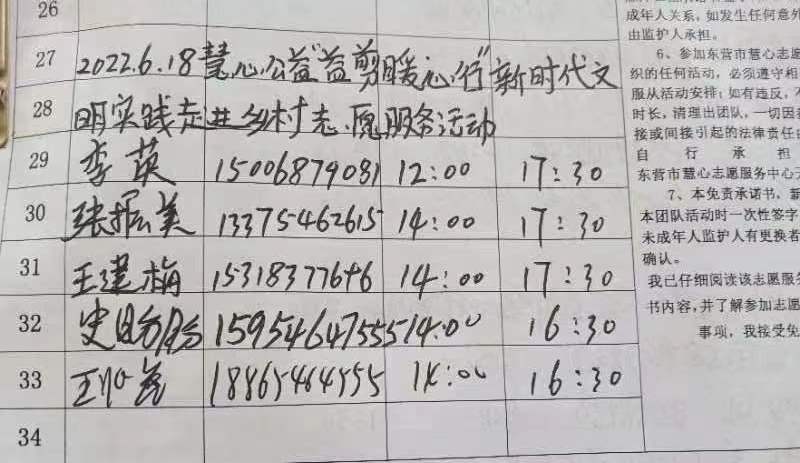 26
27 2022.6.18慧心公益"益剪暖心行"新时代文
28 明实践走进乡村志愿服务活动
29 李英 15006879081 12:00 17:30
30 张振美 13375462615 14:00 17:30
31 王建梅 15318377646 14:00 17:30
32 史 15954647555 14:00 16:30
33 王 18865464555 14:00 16:30
34
成年人关系，如发生任何意外
由监护人承担。
6、参加东营市慧心志愿
织的任何活动，必须遵守相
服从活动安排；如有违反，不
时长，清理出团队，一切因
接或间接引起的法律责任由
自行承担
东营市慧心志愿服务中心无
7、本免责承诺书，新
本团队活动时一次性签字
未成年人监护人有更换者
确认。
我已仔细阅读该志愿服务
书内容，并了解参加志愿
事项，我接受免